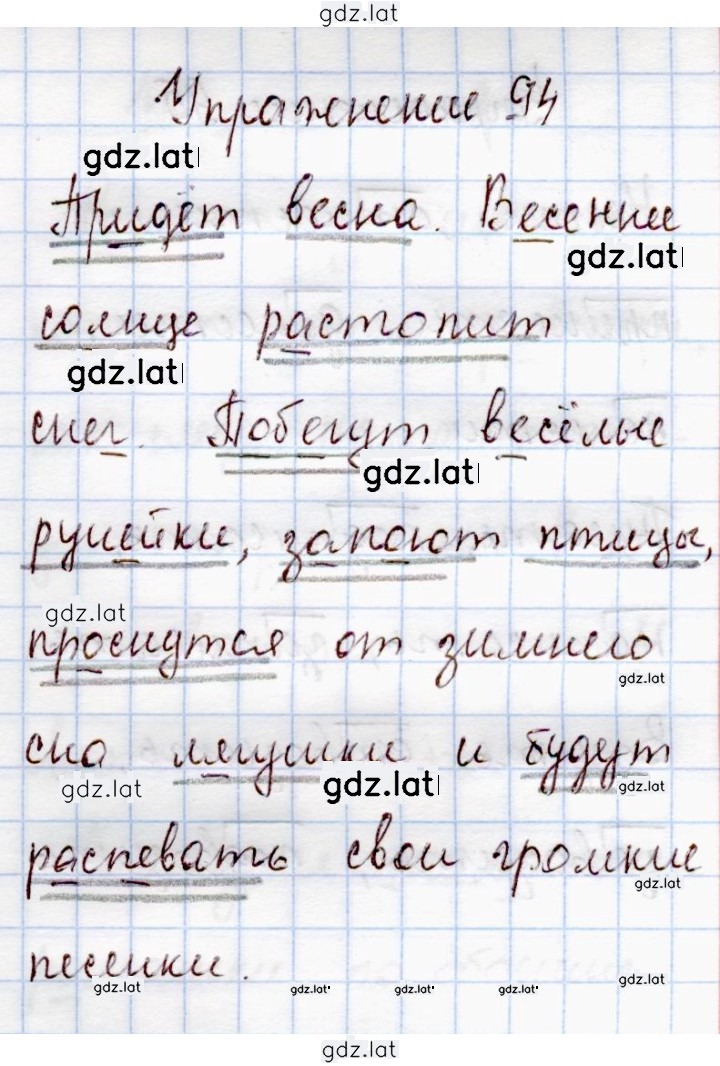 gdz.lat
Упражнение 94
gdz.lat
Придёт весна. Весеннее
gdz.lat
солнце растопит
gdz.lat
снег. Побегут весёлые
gdz.lat
ручейки, запоют птицы,
gdz.lat
проснутся от зимнего
gdz.lat
сна лягушки и будут
gdz.lat gdz.lat gdz.lat
распевать свои громкие
gdz.lat
песенки.
gdz.lat gdz.lat gdz.lat gdz.lat gdz.lat
gdz.lat